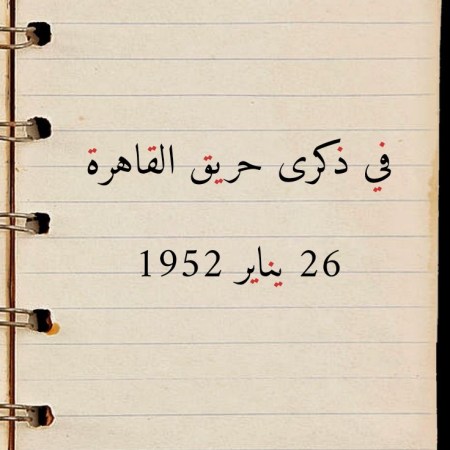 في ذكرى حريق القاهرة
26 يناير 1952